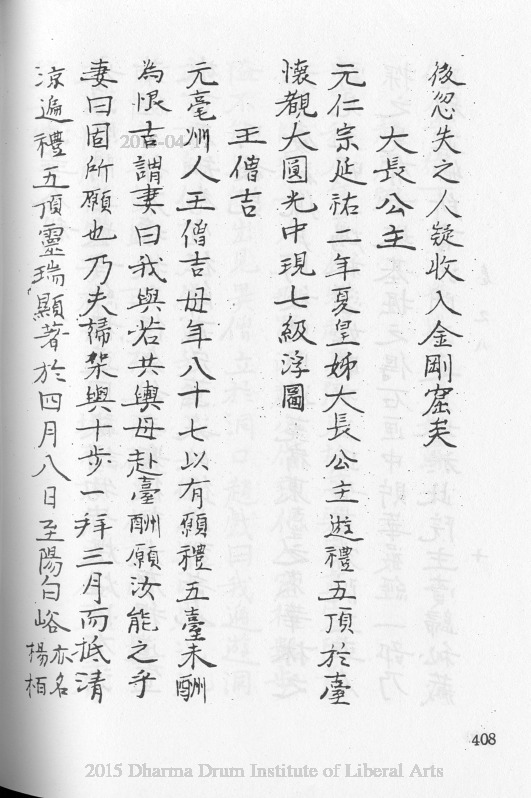 後忽失之人疑收入金剛窟矣
大長公主
元仁宗延祐二年夏皇姊大長公主遊禮五頂於臺
懷觀大圓光中現七級浮圖
王僧吉
元亳州人王僧吉母年八十七以有願禮五臺未酬
為恨吉謂妻曰我與若共輿母赴臺酬願汝能之乎
妻曰固所願也乃夫婦舁輿十步一拜三月而抵清
涼遍禮五頂靈瑞顯著於四月八日至陽白峪亦名
楊柏
408
2015 Dharma Drum Institute of Liberal Arts